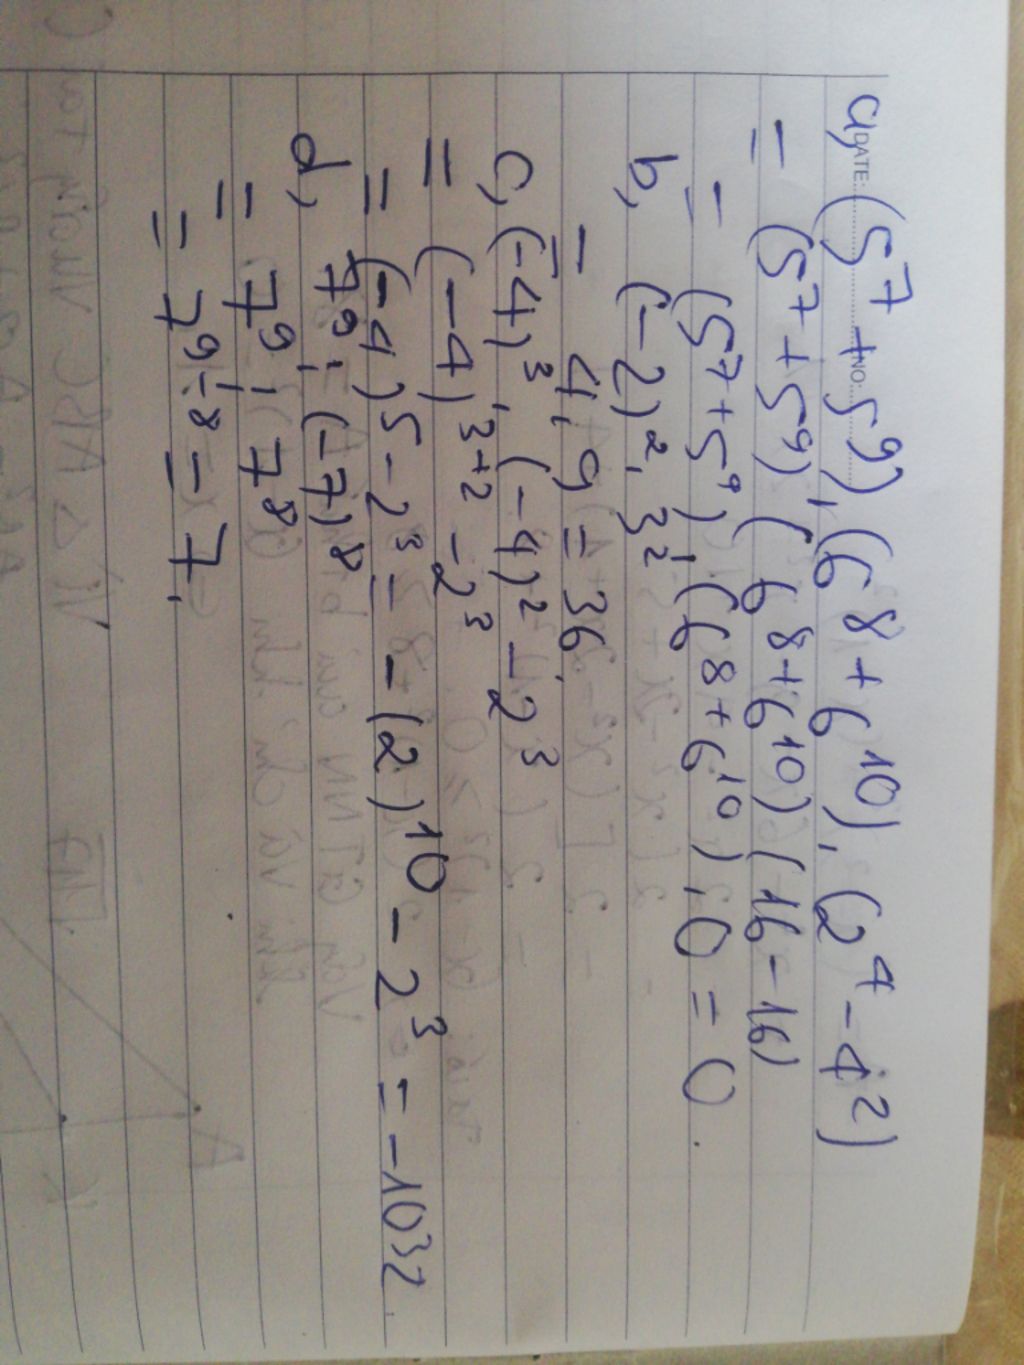 DATE: NO:
a, (5⁷ + 5⁹).(6⁸ + 6¹⁰).(2⁴ - 4²)
= (5⁷ + 5⁹).(6⁸ + 6¹⁰)(16 - 16)
= (5⁷ + 5⁹).(6⁸ + 6¹⁰).0 = 0.
b, (-2)².3²
= 4.9 = 36.
c, (-4)³.(-4)² - 2³
= (-4)³⁺² - 2³
= (-4)⁵ - 2³ = -(2)¹⁰ - 2³ = -1032.
d, 7⁹:(-7)⁸
= 7⁹:7⁸
= 7⁹⁻⁸ = 7.